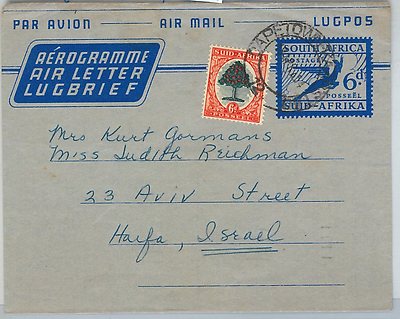 PAR AVION AIR MAIL LUGPOS
AÉROGRAMME
AIR LETTER
LUGBRIEF
SUID-AFRIKA
6d
POSSEEL
CAPETOWN
SOUTH AFRICA
POSTAGE
6d
POSSEËL
SUID-AFRIKA
Mrs Kurt Gormans
Miss Judith Reichman
23 Aviv Street
Haifa, Israel